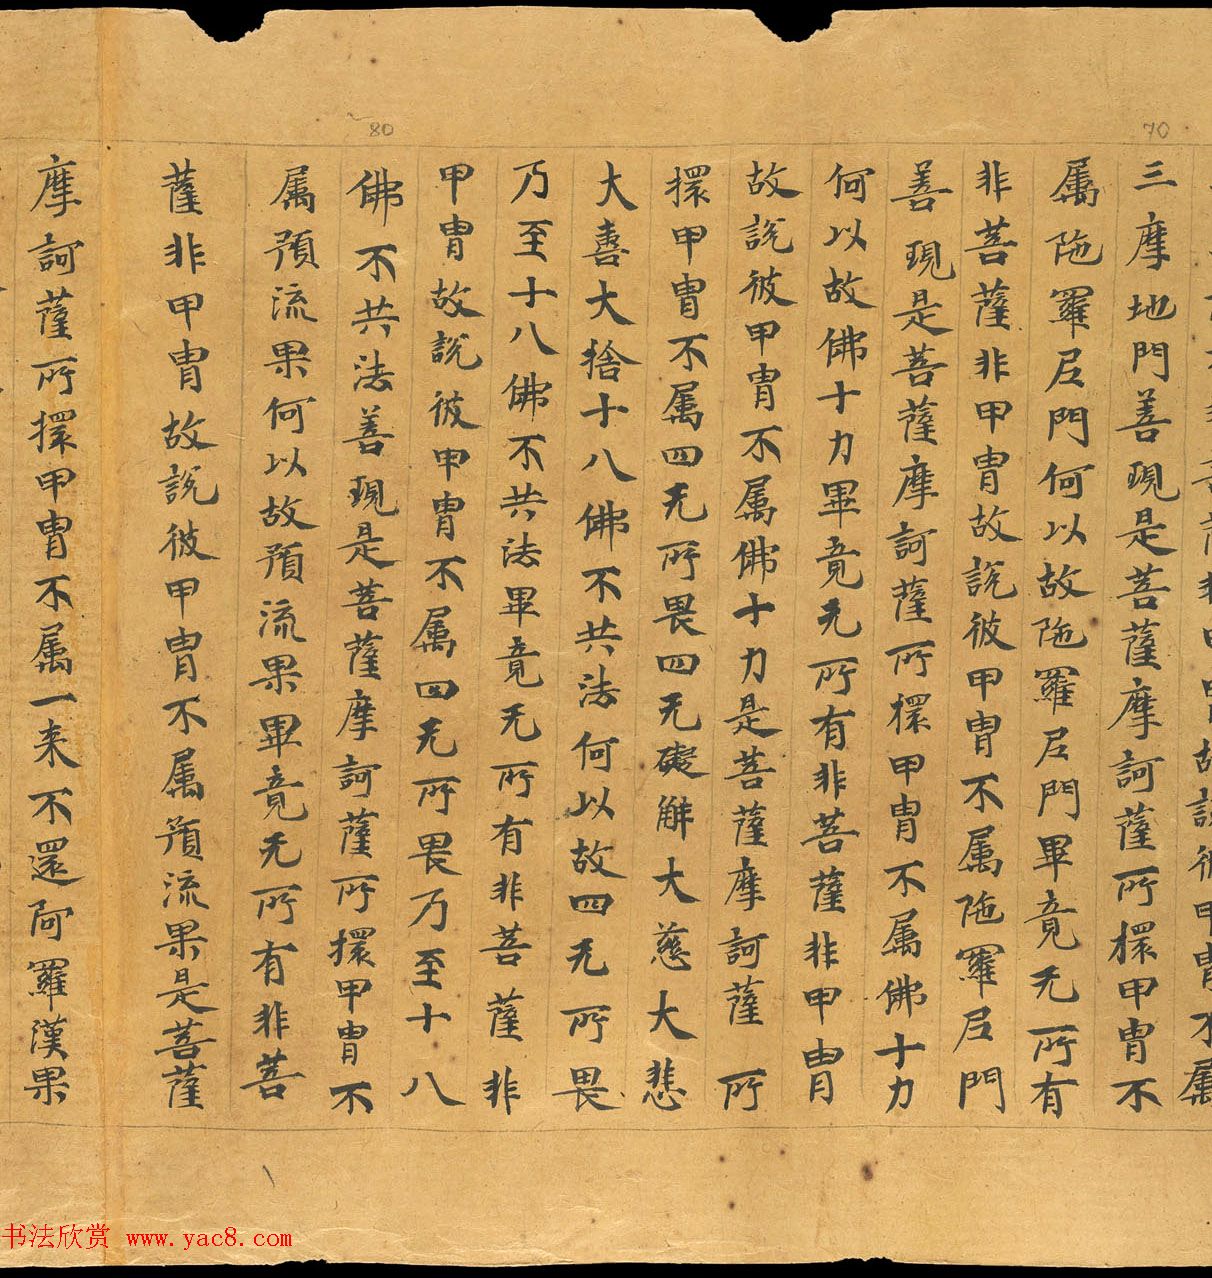 80
70
三摩地門善現是菩薩摩訶薩所擐甲冑不
属陁羅尼門何以故陁羅尼門畢竟无所有
非菩薩非甲冑故說彼甲冑不属陁羅尼門
善現是菩薩摩訶薩所擐甲冑不属佛十力
何以故佛十力畢竟无所有非菩薩非甲冑
故說彼甲冑不属佛十力是菩薩摩訶薩所
擐甲冑不属四无所畏四无礙解大慈大悲
大喜大捨十八佛不共法何以故四无所畏
乃至十八佛不共法畢竟无所有非菩薩非
甲冑故說彼甲冑不属四无所畏乃至十八
佛不共法善現是菩薩摩訶薩所擐甲冑不
属預流果何以故預流果畢竟无所有非菩
薩非甲冑故說彼甲冑不属預流果是菩薩
摩訶薩所擐甲冑不属一来不還阿羅漢果
书法欣赏 www.yac8.com